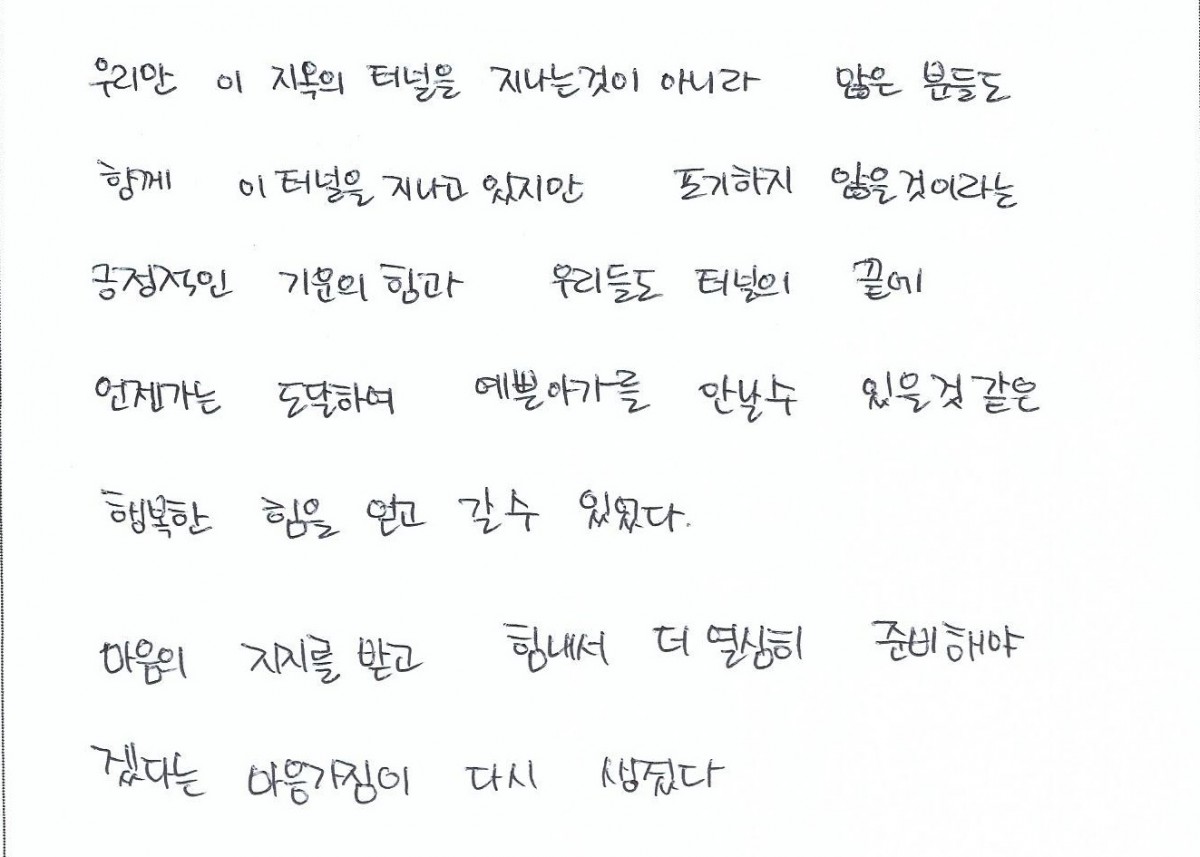 우리만 이 지옥의 터널을 지나는것이 아니라 많은 분들도
함께 이 터널을 지나고 있지만 포기하지 않을것이라는
긍정적인 기운의 힘과 우리들도 터널의 끝에
언젠가는 도달하여 예쁜아가를 만날수 있을것 같은
행복한 힘을 얻고 갈수 있었다.
마음의 지지를 받고 힘내서 더 열심히 준비해야
겠다는 마음가짐이 다시 생겼다